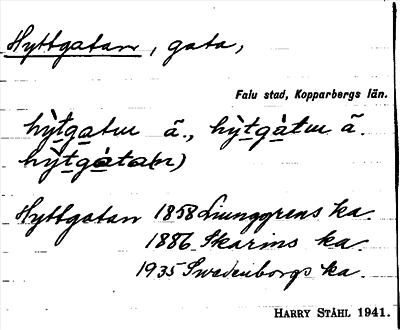 Hyttgatan, gata,
Falu stad, Kopparbergs län.
hỳt̲g̲atɯ ä., hỳt̲g̲àtɯ ä.
hỳt̲g̲àta(n)
Hyttgatan 1858 Ljunggrens ka.
1886 Skarins ka.
1935 Swedenborgs ka.
HARRY STÅHL 1941.